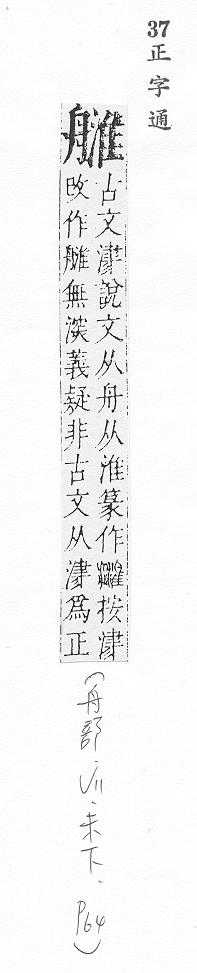 37正字通
古文津說文从舟从淮篆作 按津
改作 無渡義疑非古文从津爲正
(舟部、11、未下、P64)